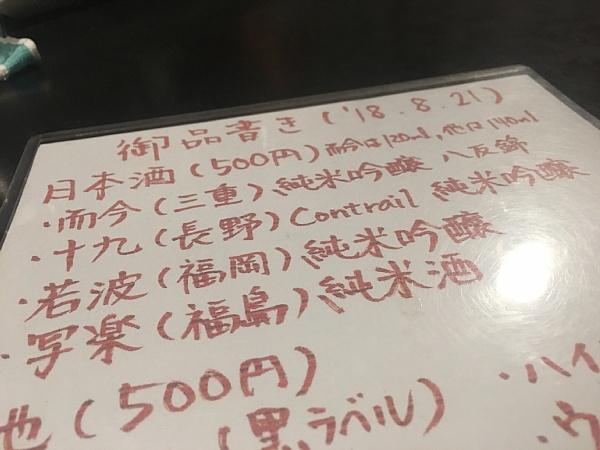 御品書き ('18.8.21)
日本酒(500円)而今は120ml,他は140ml
・而今(三重)純米吟醸 八反錦
・十九(長野)Contrail 純米吟醸
・若波(福岡)純米吟醸
・写楽(福島)純米酒
他(500円)
(黒ラベル)
・ハイ
・ウ